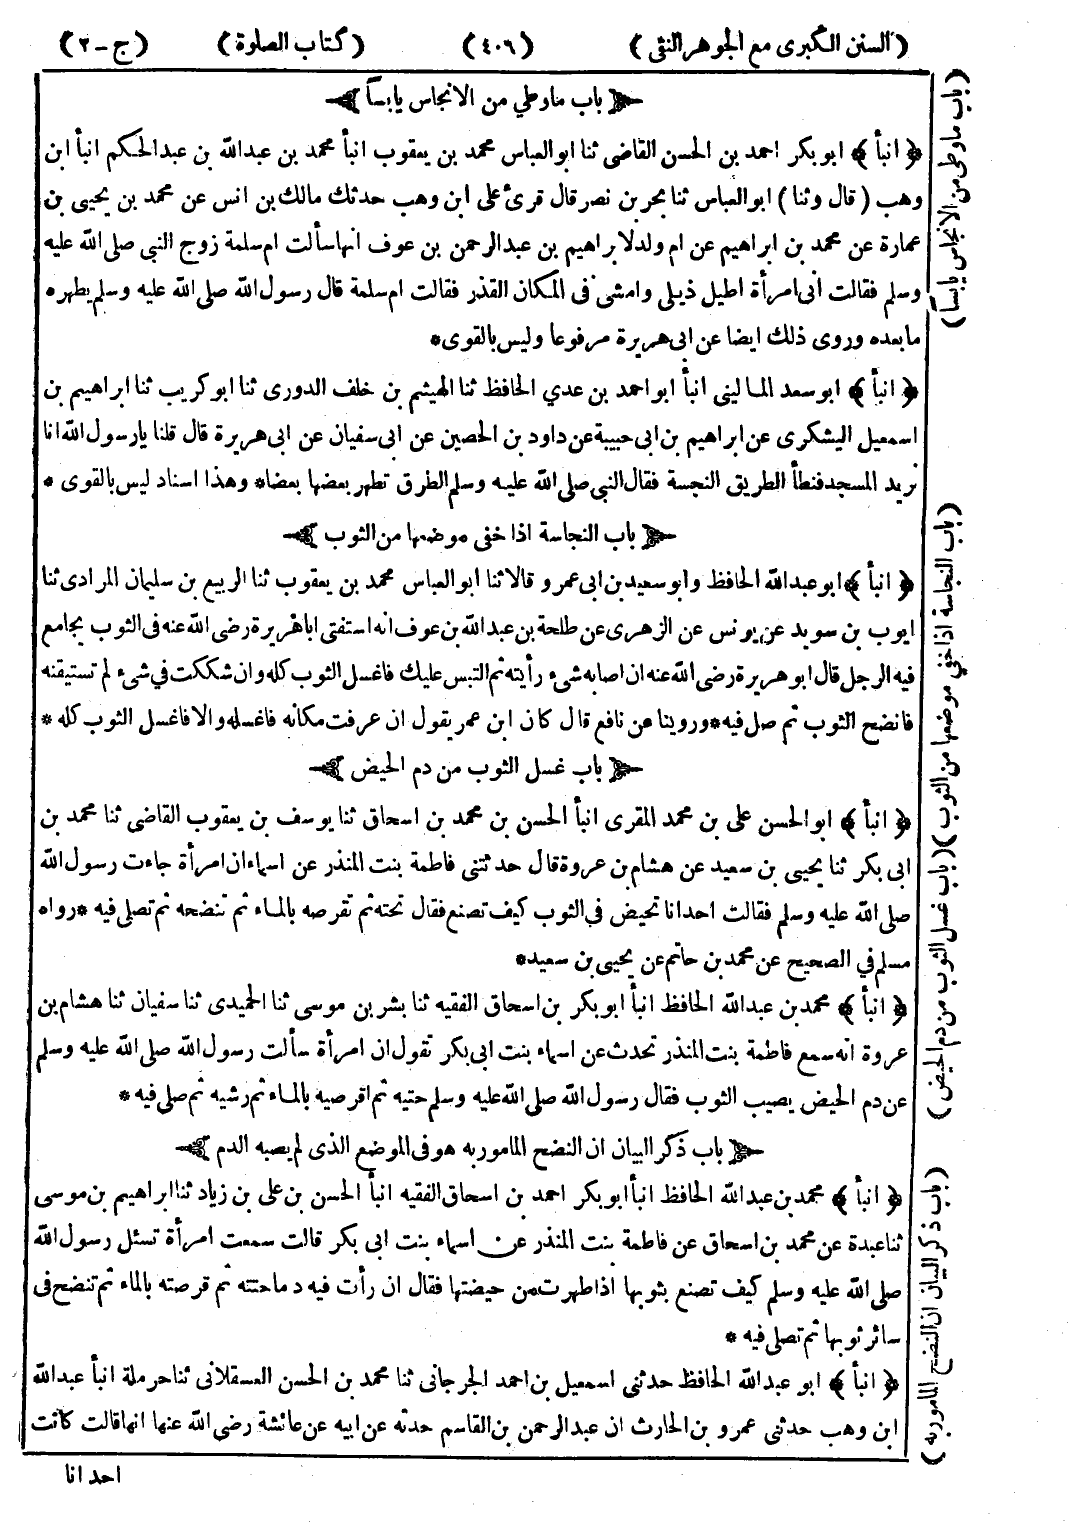 (السنن الكبرى مع الجوهر النقى) (٤٠٦) (كتاب الصلوة) (ج-٢)
باب ما وطئ من الانجاس يابسا
﴿ انبأ ﴾ ابو بكر احمد بن الحسن القاضى ثنا ابو العباس محمد بن يعقوب انبأ محمد بن عبد الله بن عبد الحكم انبأ ابن
وهب (قال وثنا) ابو العباس ثنا بحر بن نصر قال قرئ على ابن وهب حدثك مالك بن انس عن محمد بن يحيى بن
عمارة عن محمد بن ابراهيم عن ام ولد لابراهيم بن عبد الرحمن بن عوف انها سألت ام سلمة زوج النبى صلى الله عليه
وسلم فقالت أنى امرأة اطيل ذيلى وامشى فى المكان القذر فقالت ام سلمة قال رسول الله صلى الله عليه وسلم يطهره
ما بعده وروى ذلك ايضا عن ابى هريرة مرفوعا وليس بالقوى*
﴿ انبأ ﴾ ابو سعد المالينى انبأ ابو احمد بن عدي الحافظ ثنا الهيثم بن خلف الدورى ثنا ابو كريب ثنا ابراهيم بن
اسمعيل اليشكرى عن ابراهيم بن ابى حبيبة عن داود بن الحصين عن ابى سفيان عن ابى هريرة قال قلنا يا رسول الله انا
نريد المسجد فنطأ الطريق النجسة فقال النبى صلى الله عليه وسلم الطرق تطهر بعضها بعضا* وهذا اسناد ليس بالقوى *
باب النجاسة اذا خفى موضعها من الثوب
﴿ انبأ ﴾ ابو عبد الله الحافظ وابو سعيد بن ابى عمرو قالا ثنا ابو العباس محمد بن يعقوب ثنا الربيع بن سليمان المرادى ثنا
ايوب بن سويد عن يونس عن الزهرى عن طلحة بن عبد الله بن عوف انه استفتى ابا هريرة رضى الله عنه فى الثوب يجامع
فيه الرجل قال ابو هريرة رضى الله عنه ان اصابه شىء رأيته ثم التبس عليك فاغسل الثوب كله وان شككت في شىء لم تستيقنه
فانضح الثوب ثم صل فيه*وروينا عن نافع قال كان ابن عمر يقول ان عرفت مكانه فاغسله والا فاغسل الثوب كله *
باب غسل الثوب من دم الحيض
﴿ انبأ ﴾ ابو الحسن على بن محمد المقرى انبأ الحسن بن محمد بن اسحاق ثنا يوسف بن يعقوب القاضى ثنا محمد بن
ابى بكر ثنا يحيى بن سعيد عن هشام بن عروة قال حدثتنى فاطمة بنت المنذر عن اسماء ان امرأة جاءت رسول الله
صلى الله عليه وسلم فقالت احدانا تحيض فى الثوب كيف تصنع فقال تحته ثم تقرصه بالماء ثم تنضحه ثم تصلى فيه *رواه
مسلم في الصحيح عن محمد بن حاتم عن يحيى بن سعيد*
﴿ انبأ ﴾ محمد بن عبد الله الحافظ انبأ ابو بكر بن اسحاق الفقيه ثنا بشر بن موسى ثنا الحميدى ثنا سفيان ثنا هشام بن
عروة انه سمع فاطمة بنت المنذر تحدث عن اسماء بنت ابى بكر تقول ان امرأة سألت رسول الله صلى الله عليه وسلم
عن دم الحيض يصيب الثوب فقال رسول الله صلى الله عليه وسلم حتيه ثم اقرصيه بالماء ثم رشيه ثم صلى فيه *
باب ذكر البيان ان النضح المامور به هو فى الموضع الذى لم يصبه الدم
﴿ انبأ ﴾ محمد بن عبد الله الحافظ انبأ ابو بكر احمد بن اسحاق الفقيه انبأ الحسن بن على بن زياد ثنا ابراهيم بن موسى
ثنا عبدة عن محمد بن اسحاق عن فاطمة بنت المنذر عن اسماء بنت ابى بكر قالت سمعت امرأة تسئل رسول الله
صلى الله عليه وسلم كيف تصنع بثوبها اذا طهرت من حيضتها فقال ان رأت فيه دما حتته ثم قرصته بالماء ثم تنضح فى
سائر ثوبها ثم تصلى فيه *
﴿ انبأ ﴾ ابو عبد الله الحافظ حدثنى اسمعيل بن احمد الجرجانى ثنا محمد بن الحسن العسقلانى ثنا حرملة انبأ عبد الله
ابن وهب حدثنى عمرو بن الحارث ان عبد الرحمن بن القاسم حدثه عن ابيه عن عائشة رضى الله عنها انها قالت كانت
احدانا
(باب ما وطئ من الانجاس يابسا)
(باب النجاسة اذا خفى موضعها من الثوب)
(باب غسل الثوب من دم الحيض)
(باب ذكر البيان ان النضح المامور به)